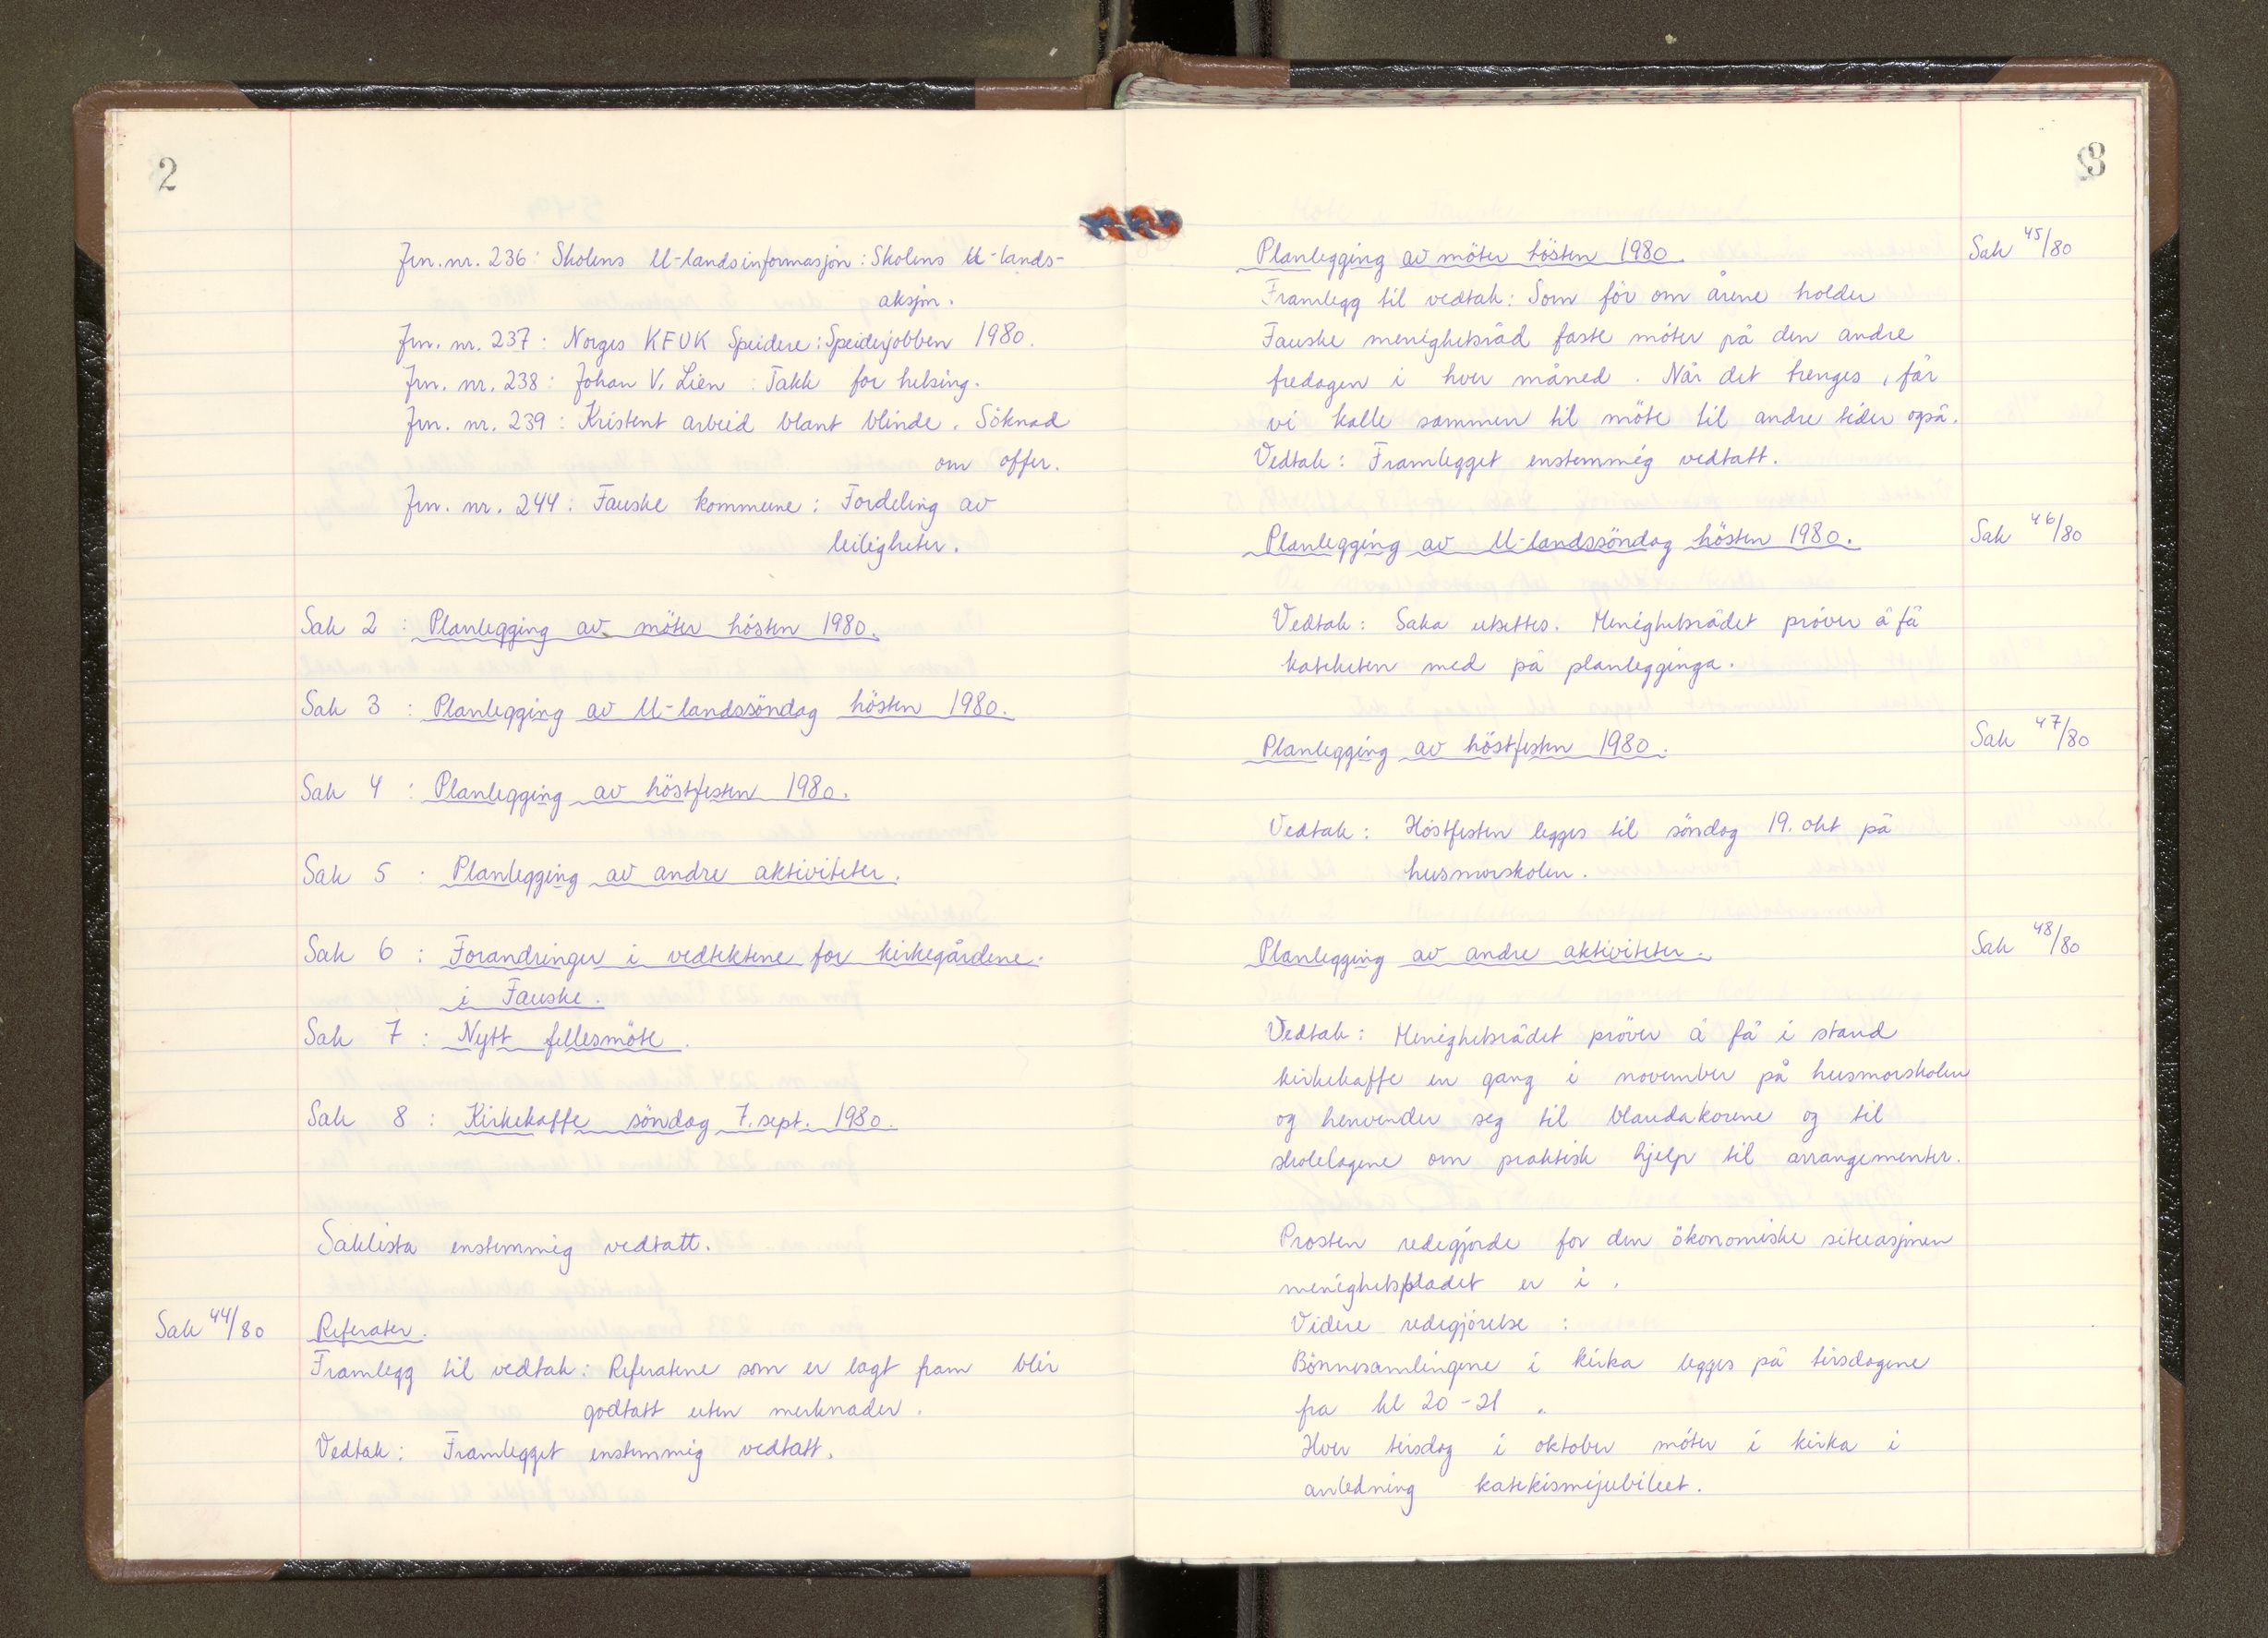 2
Jrn. nr. 236: Skolens U-landsinformasjon: Skolens U-lands-
aksjon.
Jrn. nr. 237: Norges KFUK Speidere: Speiderjobben 1980.
Jrn. nr. 238: Johan V. Lien: Takk for helsing.
Jrn. nr. 239: Kristent arbeid blant blinde. Söknad
om offer.
Jrn. nr. 244: Fauske kommune: Fordeling av
leiligheter.
Sak 2 : Planlegging av möter hösten 1980.
Sak 3 : Planlegging av U-landssöndag hösten 1980.
Sak 4 : Planlegging av höstfesten 1980.
Sak 5 : Planlegging av andre aktiviteter.
Sak 6 : Forandringer i vedtektene for kirkegårdene
i Fauske.
Sak 7 : Nytt fellesmöte.
Sak 8 : Kirkekaffe söndag 7. sept. 1980.
Saklista enstemmig vedtatt.
Sak 44/80 Referater.
Framlegg til vedtak: Referatene som er lagt fram blir
godtatt uten merknader.
Vedtak: Framlegget enstemmig vedtatt.
3
Planlegging av möter hösten 1980. Sak 45/80
Framlegg til vedtak: Som för om årene holder
Fauske menighetsråd faste möter på den andre
fredagen i hver måned. Når det trenges, får
vi kalle sammen til möte til andre tider også.
Vedtak: Framlegget enstemmig vedtatt.
Planlegging av U-landssöndag hösten 1980. Sak 46/80
Vedtak: Saka utsettes. Menighetsrådet pröver å få
kateketen med på planlegginga.
Planlegging av höstfesten 1980. Sak 47/80
Vedtak: Höstfesten legges til söndag 19. okt på
husmorskolen.
Planlegging av andre aktiviteter. Sak 48/80
Vedtak: Menighetsrådet pröver å få i stand
kirkekaffe en gang i november på husmorskolen
og henvender seg til blandakorene og til
skolelagene om praktisk hjelp til arrangementer.
Prosten redegjorde for den ökonomiske situasjonen
menighetsbladet er i.
Videre redegjörelse :
Bönnesamlingene i kirka legges på tirsdagene
fra kl 20-21.
Hver tirsdag i oktober möter i kirka i
anledning katekismejubileet.